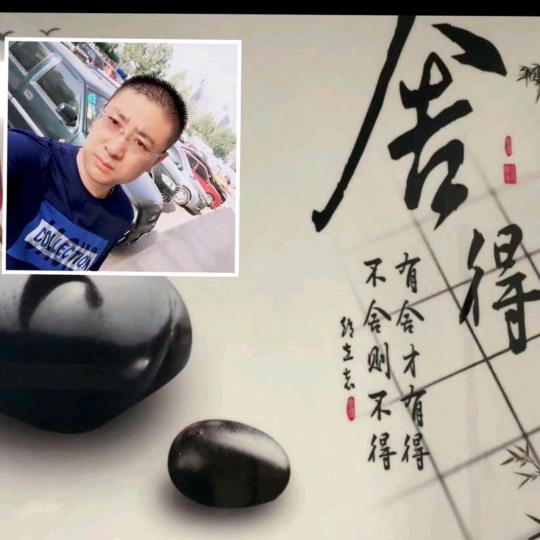 舍
得
有舍才有得
不舍则不得
COLLECTION